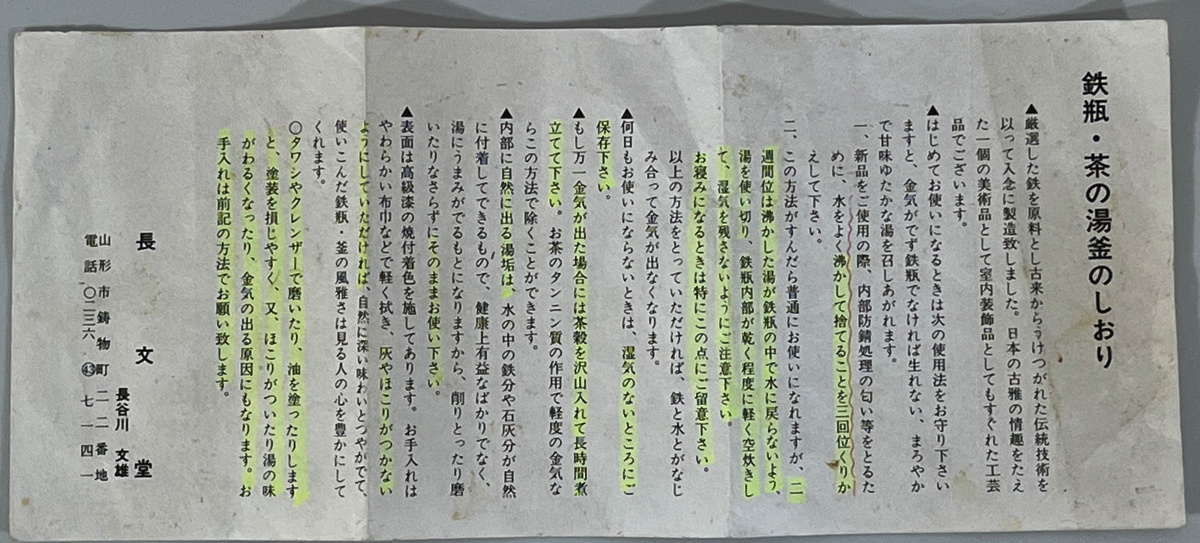 鉄瓶・茶の湯釜のしおり
▲厳選した鉄を原料とし古来からうけつがれた伝統技術を
以って入念に製造致しました。日本の古雅の情趣をたたえ
た一個の美術品として室内装飾品としてもすぐれた工芸
品でございます。
▲はじめてお使いになるときは次の使用法をお守り下さい
ますと、金気がでず鉄瓶でなければ生れない、まろやか
で甘味ゆたかな湯を召しあがれます。
一、新品をご使用の際、内部防錆処理の匂い等をとるた
めに、水をよく沸かして捨てることを三回位くりか
えして下さい。
二、この方法がすんだら普通にお使いになれますが、二
週間位は沸かした湯が鉄瓶の中で水に戻らないよう、
湯を使い切り、鉄瓶内部が乾く程度に軽く空炊きし
て、湿気を残さないようにご注意下さい。
お寝みになるときは特にこの点にご留意下さい。
以上の方法をとっていただければ、鉄と水とがなじ
み合って金気が出なくなります。
▲何日もお使いにならないときは、湿気のないところにご
保存下さい。
▲もし万一金気が出た場合には茶殻を沢山入れて長時間煮
立てて下さい。お茶のタンニン質の作用で軽度の金気な
らこの方法で除くことができます。
▲内部に自然に出る湯垢は、水の中の鉄分や石灰分が自然
に付着してできるもので、健康上有益なばかりでなく、
湯にうまみがでるもとになりますから、削りとったり磨
いたりなさらずにそのままお使い下さい。
▲表面は高級漆の焼付着色を施してあります。お手入れは
やわらかい布巾などで軽く拭き、灰やほこりがつかない
ようにしていただければ、自然に深い味わいとつやがでて、
使いこんだ鉄瓶・釜の風雅さは見る人の心を豊かにして
くれます。
〇タワシやクレンザーで磨いたり、油を塗ったりします
と、塗装を損じやすく、又、ほこりがついたり湯の味
がわるくなったり、金気の出る原因にもなります。お
手入れは前記の方法でお願い致します。
長文堂
長谷川 文雄
山形市鋳物町二二番地
電話〇二三六㊸七一四一